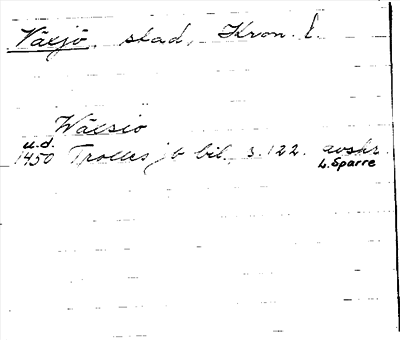 Växjö, stad, Kron. l.
Wäcsiö
u.d.
1450 Trolles jb bil. s. 122. avskr.
L. Sparre